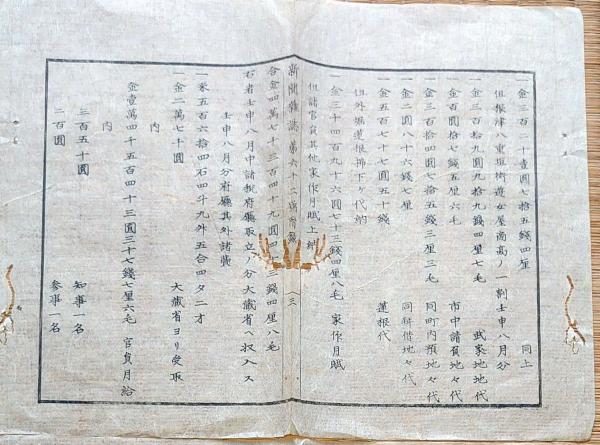 一金三百二十壹圓七拾五錢四厘 同上
但根津八重垣町遊女屋商高ノ一割壬申八月分
一金三百拾九圓九拾九錢四厘七毛 武家地地代
一金百圓拾七錢五厘六毛 市中請負地々代
一金三百拾四圓七拾五錢三厘三毛 同町内預地々代
一金二圓八十六錢七厘 同耕借地々代
一金五百七十七圓五十錢 蓮根代
但外堀蓮根拂下ケ代納
一金三千四百九十六圓七十三錢四厘八毛 家作月賦
但諸官員其他家作月賦上納
新聞雜誌第六十二號附錄 三
合金四万七十三百四十九圓四十三錢四厘八毛
右者壬申八月中諸税府廳取立ノ分大藏省ヘ収入ス
壬申八月分府廳其外諸費
一米五百六拾四石四斗九升五合四夕二才
一金二万七十圓 大藏省ヨリ受取
内
金壹萬四千五百四十三圓三十七錢七厘六毛 官員月給
内
三百五十圓 知事一名
二百圓 參事一名